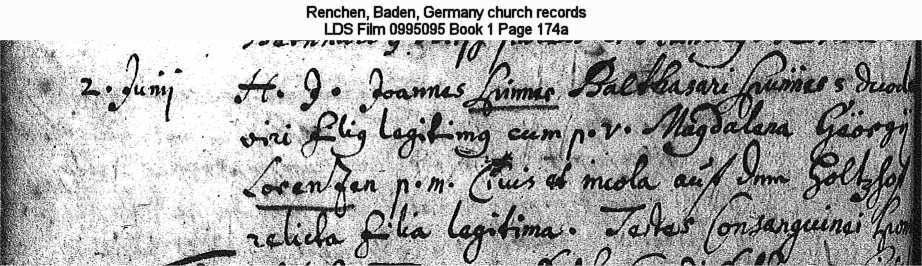 Renchen, Baden, Germany church records
LDS Film 0995095 Book 1 Page 174a
2. Junij H. J. Joannes Balthasari
viri filig legitimg cum p. v. Magdalena Geörgij
Lorentzen p. m. Civis et incola auf dem Holtzhof
relicta filia legitima. Testes Consanguinei